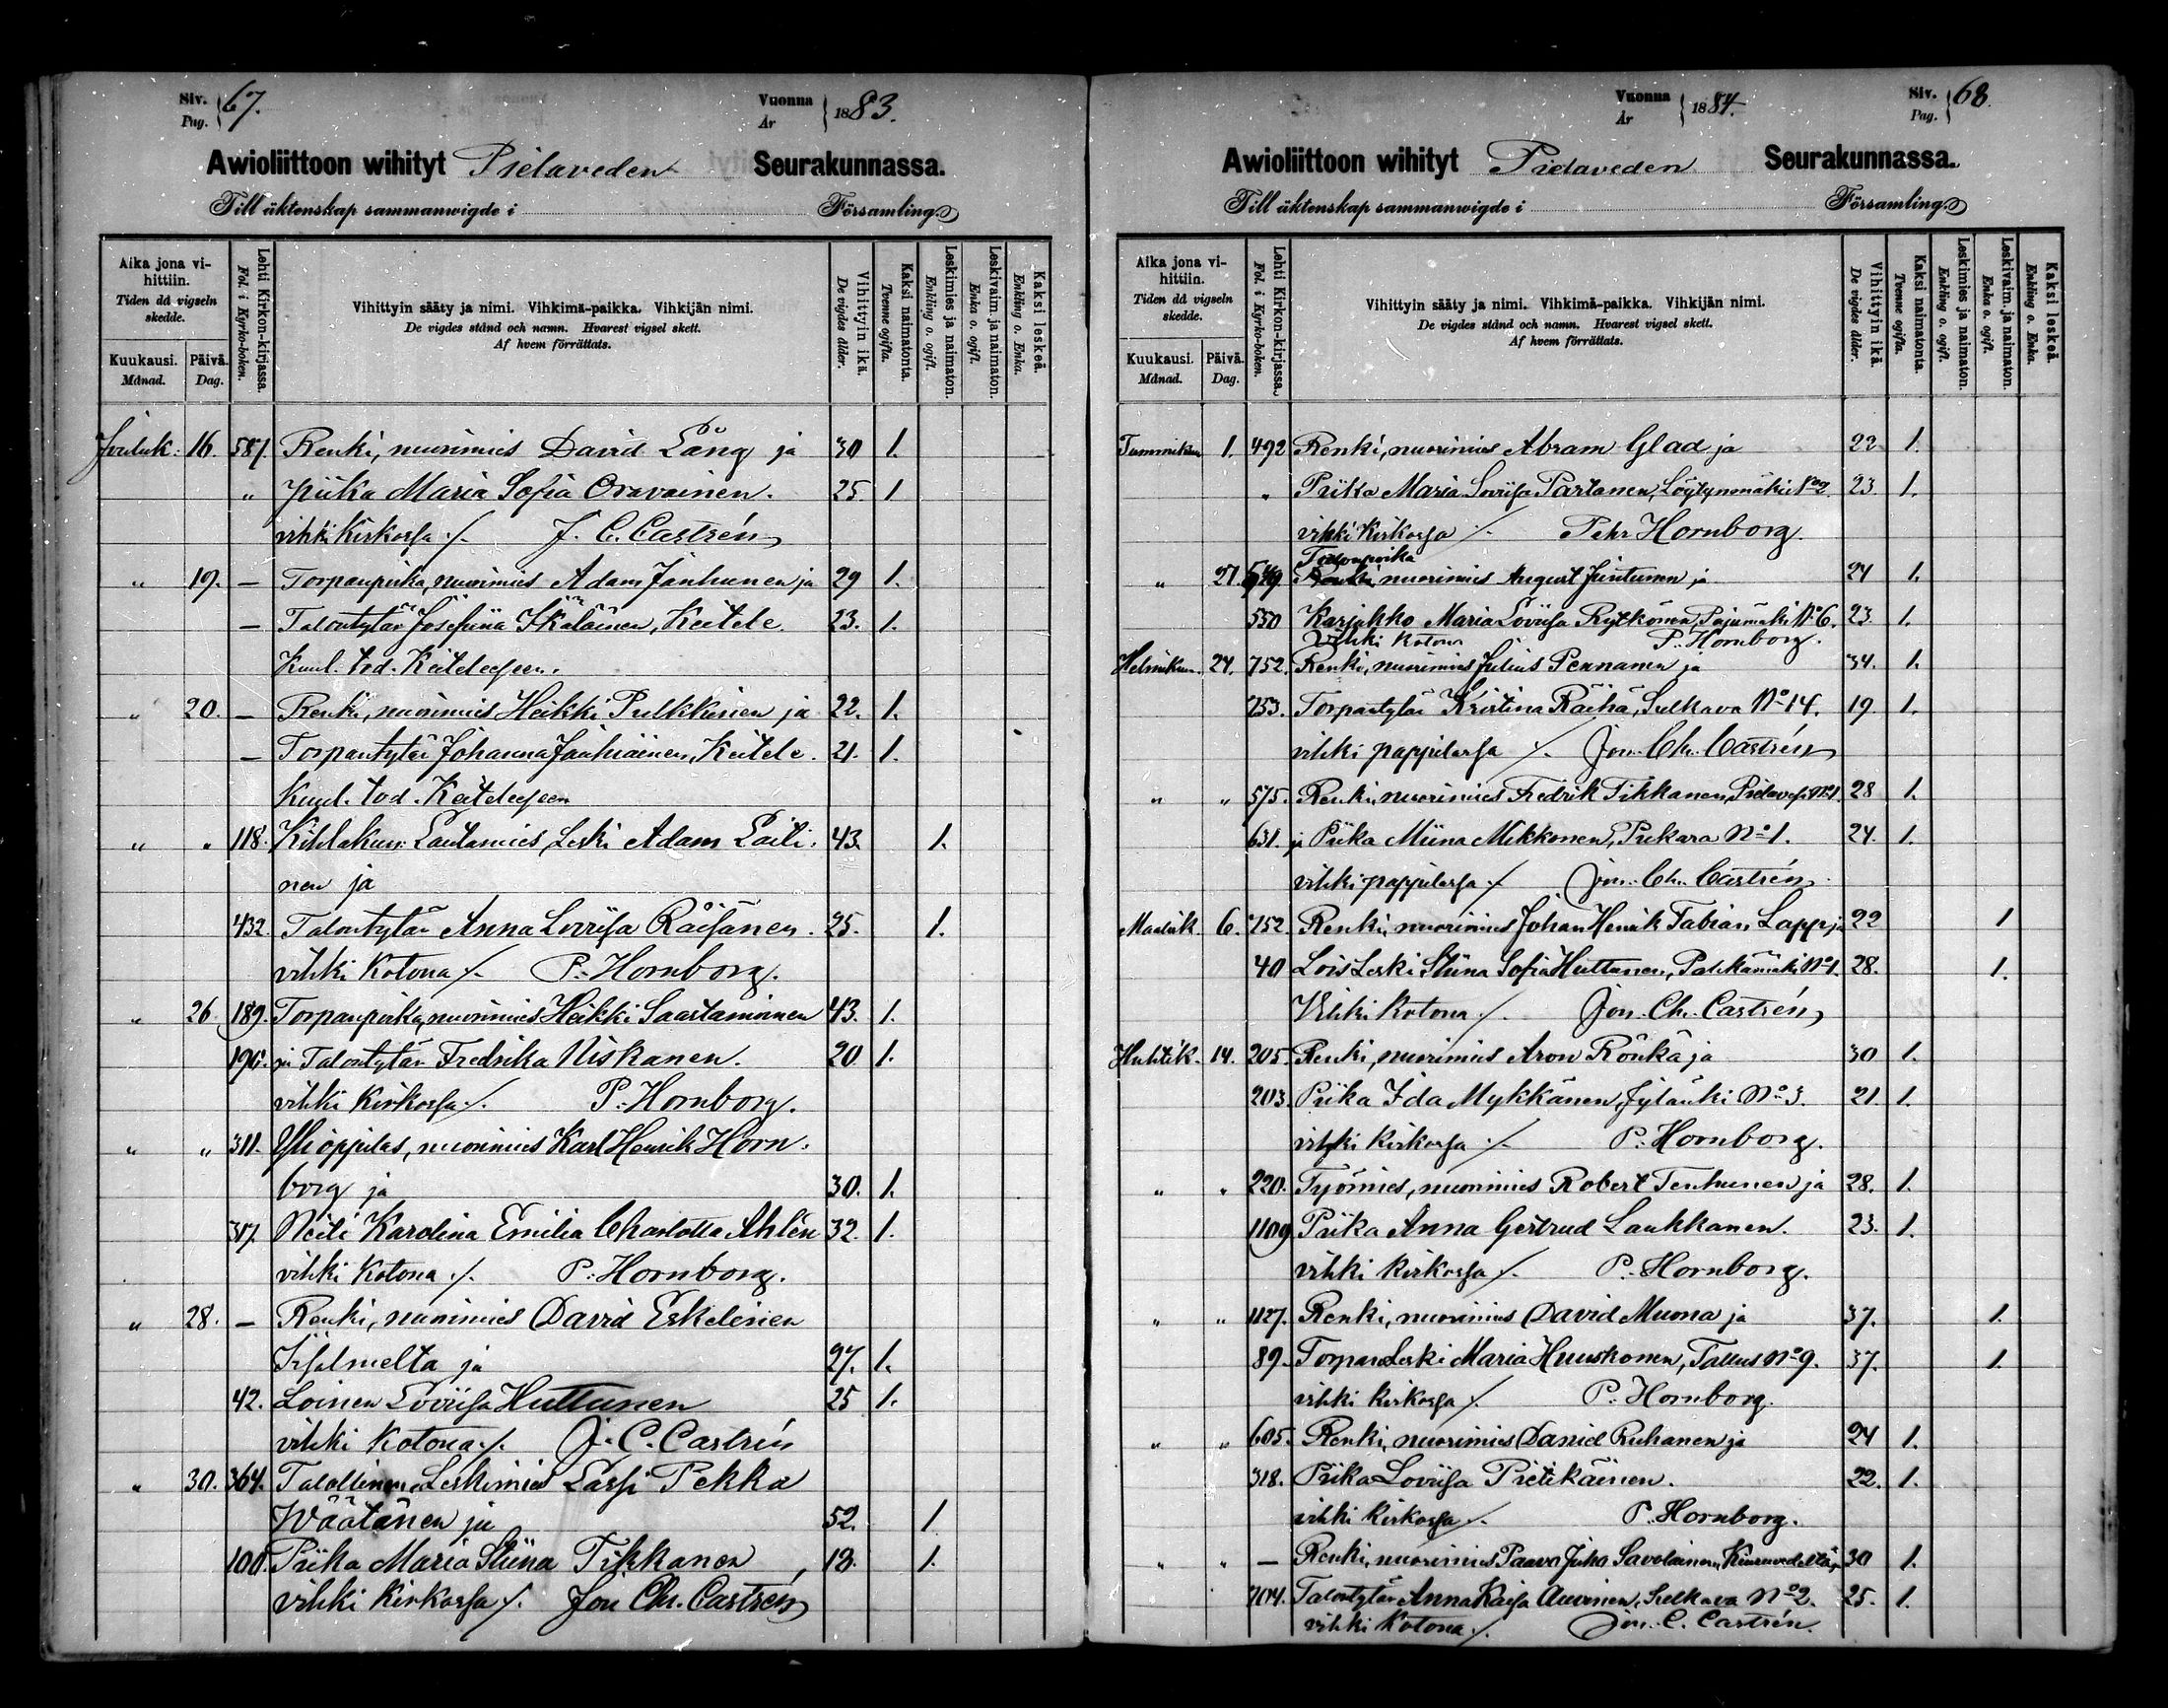 Siv. Pag. 67.
Vuonna År 1883.
Awioliittoon wihityt Pielaveden Seurakunnassa.
Till äktenskap sammanwigde i Församling.
Aika jona vihittiin. Tiden då vigseln skedde.
Kuukausi. Månad.
Päivä. Dag.
Lehti Kirkon-kirjassa. Fol. i Kyrko-boken.
Vihittyin sääty ja nimi. Vihkimä-paikka. Vihkijän nimi.
De vigdes stånd och namn. Hvarest vigsel skett.
Af hvem förrättats.
Vihittyin ikä. De vigdes ålder.
Kaksi naimatonta. Tvenne ogifta.
Leskimies ja naimaton. Enkling o. ogift.
Leskivaim. ja naimaton. Enka o. ogift.
Kaksi leskeä. Enkling o. Enka.
Jouluk. 16. 587. Renki, nuorimies David Lång ja 30 1.
" Piika Maria Sofia Oravainen. 25 1
vihki Kirkossa ./. J. C. Castrén
" 19. — Torpanpoika, nuorimies Adam Janhunen ja 29 1.
— Talontytär Josefiina Ikäläinen, Keitele. 23. 1.
Kuul. tod. Keiteleesen.
" 20. — Renki, nuorimies Heikki Pulkkinen ja 22. 1.
— Torpantytär Johanna Jauhiainen, Keitele. 21. 1.
Kuul. tod. Keiteleesen
" " 118. Kihlakun: Lautamies, Leski Adam Laiti- 43. 1.
nen ja
432. Talontytär Anna Lovisa Räisänen. 25. 1.
vihki Kotona ./. P. Hornborg.
" 26. 189. Torpanpoika, nuorimies Heikki Saastamoinen 43. 1.
196. ja Talontytär Fredrika Niskanen. 20 1.
vihki Kirkossa ./. P. Hornborg.
" " 311. Ylioppilas, nuorimies Karl Henrik Horn-
borg ja 30. 1.
317. Neiti Karolina Emilia Charlotta Ahlén 32. 1.
vihki Kotona ./. P. Hornborg.
" 28. — Renki, nuorimies David Eskelinen
Iisalmelta ja 27. 1.
42. Loinen Loviisa Huttunen 25 1.
vihki Kotona ./. J. C. Castrén
" 30. 364. Talollinen Leskimies Lassi Pekka
Wäätänen ja 52. 1
100. Piika Maria Stiina Tikkanen, 18. 1.
vihki Kirkossa ./. Jon Ch. Castrén
Vuonna År 1884.
Siv. Pag. 68.
Awioliittoon wihityt Pielaveden Seurakunnassa.
Till äktenskap sammanwigde i Församling.
Aika jona vihittiin. Tiden då vigseln skedde.
Kuukausi. Månad.
Päivä. Dag.
Lehti Kirkon-kirjassa. Fol. i Kyrko-boken.
Vihittyin sääty ja nimi. Vihkimä-paikka. Vihkijän nimi.
De vigdes stånd och namn. Hvarest vigsel skett.
Af hvem förrättats.
Vihittyin ikä. De vigdes ålder.
Kaksi naimatonta. Tvenne ogifta.
Leskimies ja naimaton. Enkling o. ogift.
Leskivaim. ja naimaton. Enka o. ogift.
Kaksi leskeä. Enkling o. Enka.
Tammikuu 1. 492 Renki, nuorimies Abram Glad ja 22 1.
" Piika Maria Loviisa Partanen, Löytynmäki 23 1.
vihki Kirkossa ./. Petr Hornborg.
Talonpoika
" 27. 549 Renki, nuorimies August Juntunen ja 24 1.
550 Karjakko Maria Loviisa Rytkönen, Pajumäki No 6. 23 1.
Vihki kotona P. Hornborg.
Helmikuu. 24. 752. Renki, nuorimies Julius Pennanen ja 34. 1.
753. Torpantytär Kristina Räihä, Sulkava No 14. 19 1.
vihki pappilassa ./. Jon. Ch. Castrén
" " 575. Renki, nuorimies Fredrik Tikkanen, Pielaves. No 1. 28 1.
631. ja Piika Miina Mikkonen, Pukara No 1. 24. 1.
vihki pappilassa ./. Jon. Ch. Castrén
Maalisk. 6. 752 Renki, nuorimies Johan Henrik Fabian Lapp ja 22 1
40 Lois Leski Stiina Sofia Huttunen, Pahkamäki No 1. 28. 1.
Vihki Kotona ./. Jon. Ch. Castrén
Huhtik. 14. 205. Renki, nuorimies Aron Rönkä ja 30 1.
203. Piika Ida Mykkänen, Jylänki No 3. 21. 1.
vihki Kirkossa ./. P. Hornborg.
" " 220. Työmies, nuorimies Robert Tenhunen ja 28. 1.
1109 Piika Anna Gertrud Laukkanen. 23. 1.
vihki kirkossa ./. P. Hornborg.
" " 1127. Renki, nuorimies David Muona ja 37. 1.
89. Torpan Leski Maria Huuskonen, Tallus No 9. 37. 1.
vihki kirkossa ./. P. Hornborg.
" " 605. Renki, nuorimies Daniel Ruhanen ja 24 1.
318. Piika Loviisa Pietikäinen. 22. 1.
vihki Kirkossa ./. P. Hornborg.
" " — Renki, nuorimies Paavo Juho Savolainen, Kiuruvedeltä, ja 30 1.
704. Talontytär Anna Kaisa Auvinen, Sulkava No 2. 25. 1.
vihki Kotona ./. Jon. C. Castrén.